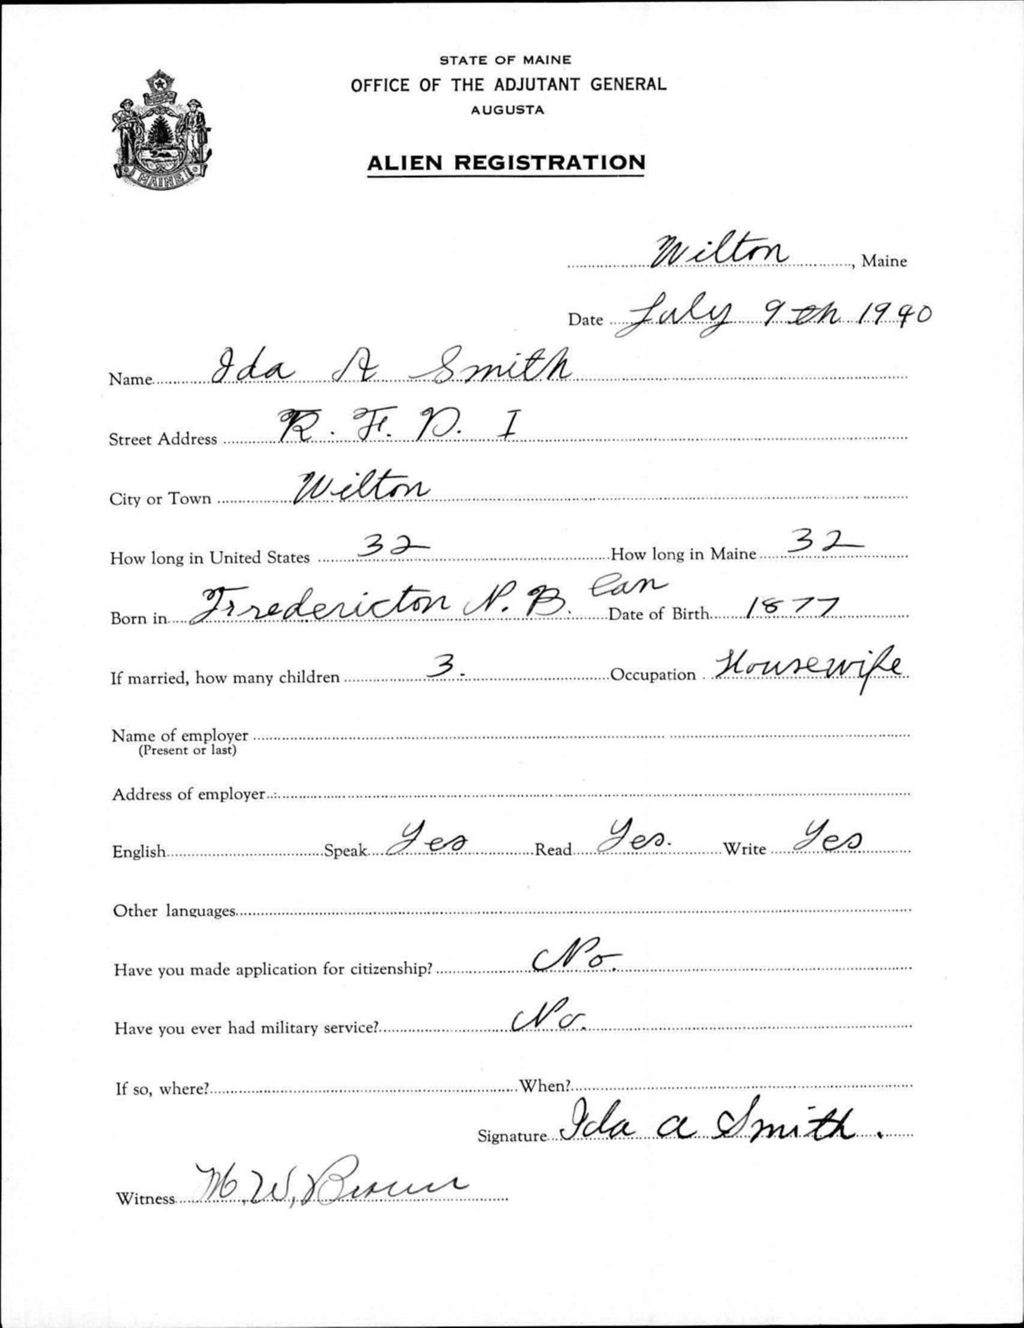 STATE OF MAINE
OFFICE OF THE ADJUTANT GENERAL
AUGUSTA
ALIEN REGISTRATION
MAINE
Wilton, Maine
Date July 9th 1940
Name Ida A Smith
Street Address R. F. D. I
City or Town Wilton
How long in United States 32 How long in Maine 32
Born in Fredericton N. B. Can Date of Birth 1877
If married, how many children 3. Occupation Housewife
Name of employer
(Present or last)
Address of employer
English Speak Yes Read Yes. Write Yes
Other languages
Have you made application for citizenship? No.
Have you ever had military service? No.
If so, where? When?
Signature Ida A Smith.
Witness M. W. Brown